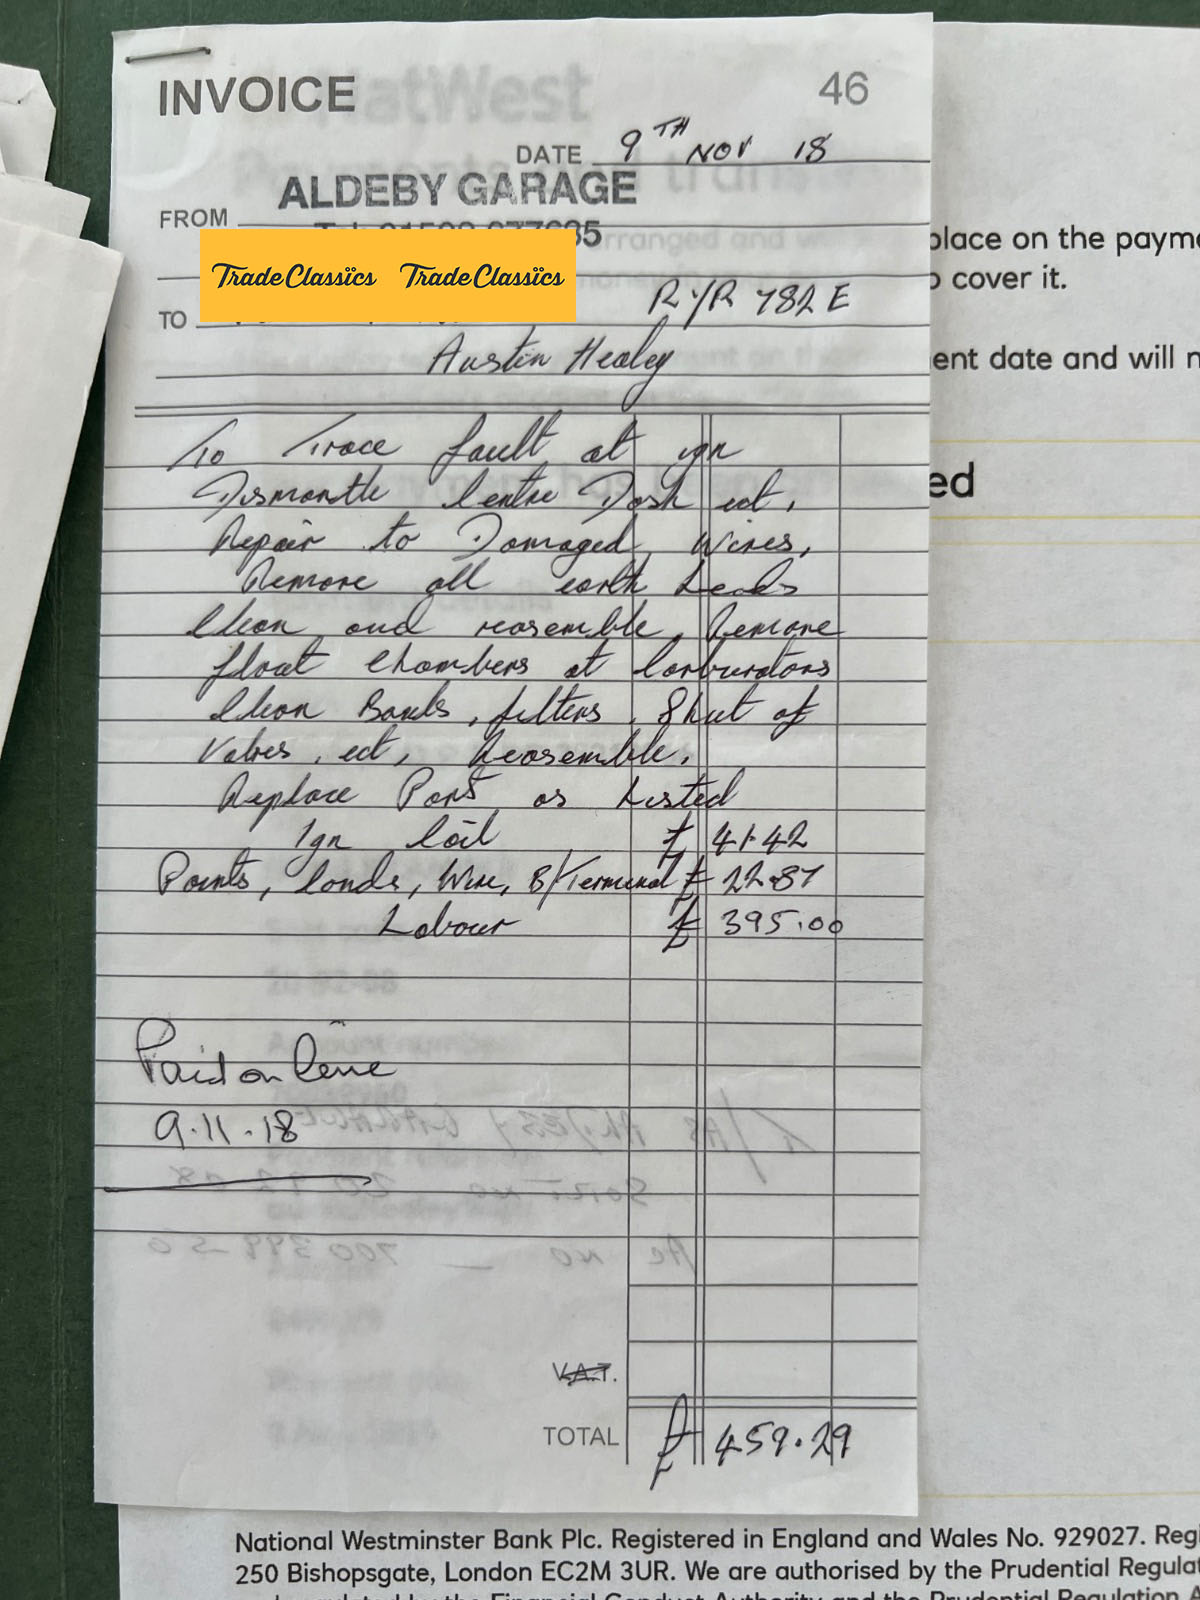 INVOICE
46
DATE 9TH NOV 18
ALDEBY GARAGE
FROM
TradeClassics TradeClassics
TO
Austin Healey
To Trace fault at ign
Dismantle Centre Dash ect,
Repair to Damaged Wires,
Remove all earth Leads
Clean and reasemble, Remove
float Chambers at Carburators
Clean Bowls, filters, Shut of
Valves, ect, Reasemble,
Replace Parts as Listed
Ign Coil £ 41.42
Points, Conds, Wire, B/Terminal £ 22.87
Labour £ 395.00
Paid on line
9.11.18
V.A.T.
TOTAL £ 459.29
NatWest
place on the payme
o cover it.
ent date and will n
ed
National Westminster Bank Plc. Registered in England and Wales No. 929027. Regi
250 Bishopsgate, London EC2M 3UR. We are authorised by the Prudential Regulat